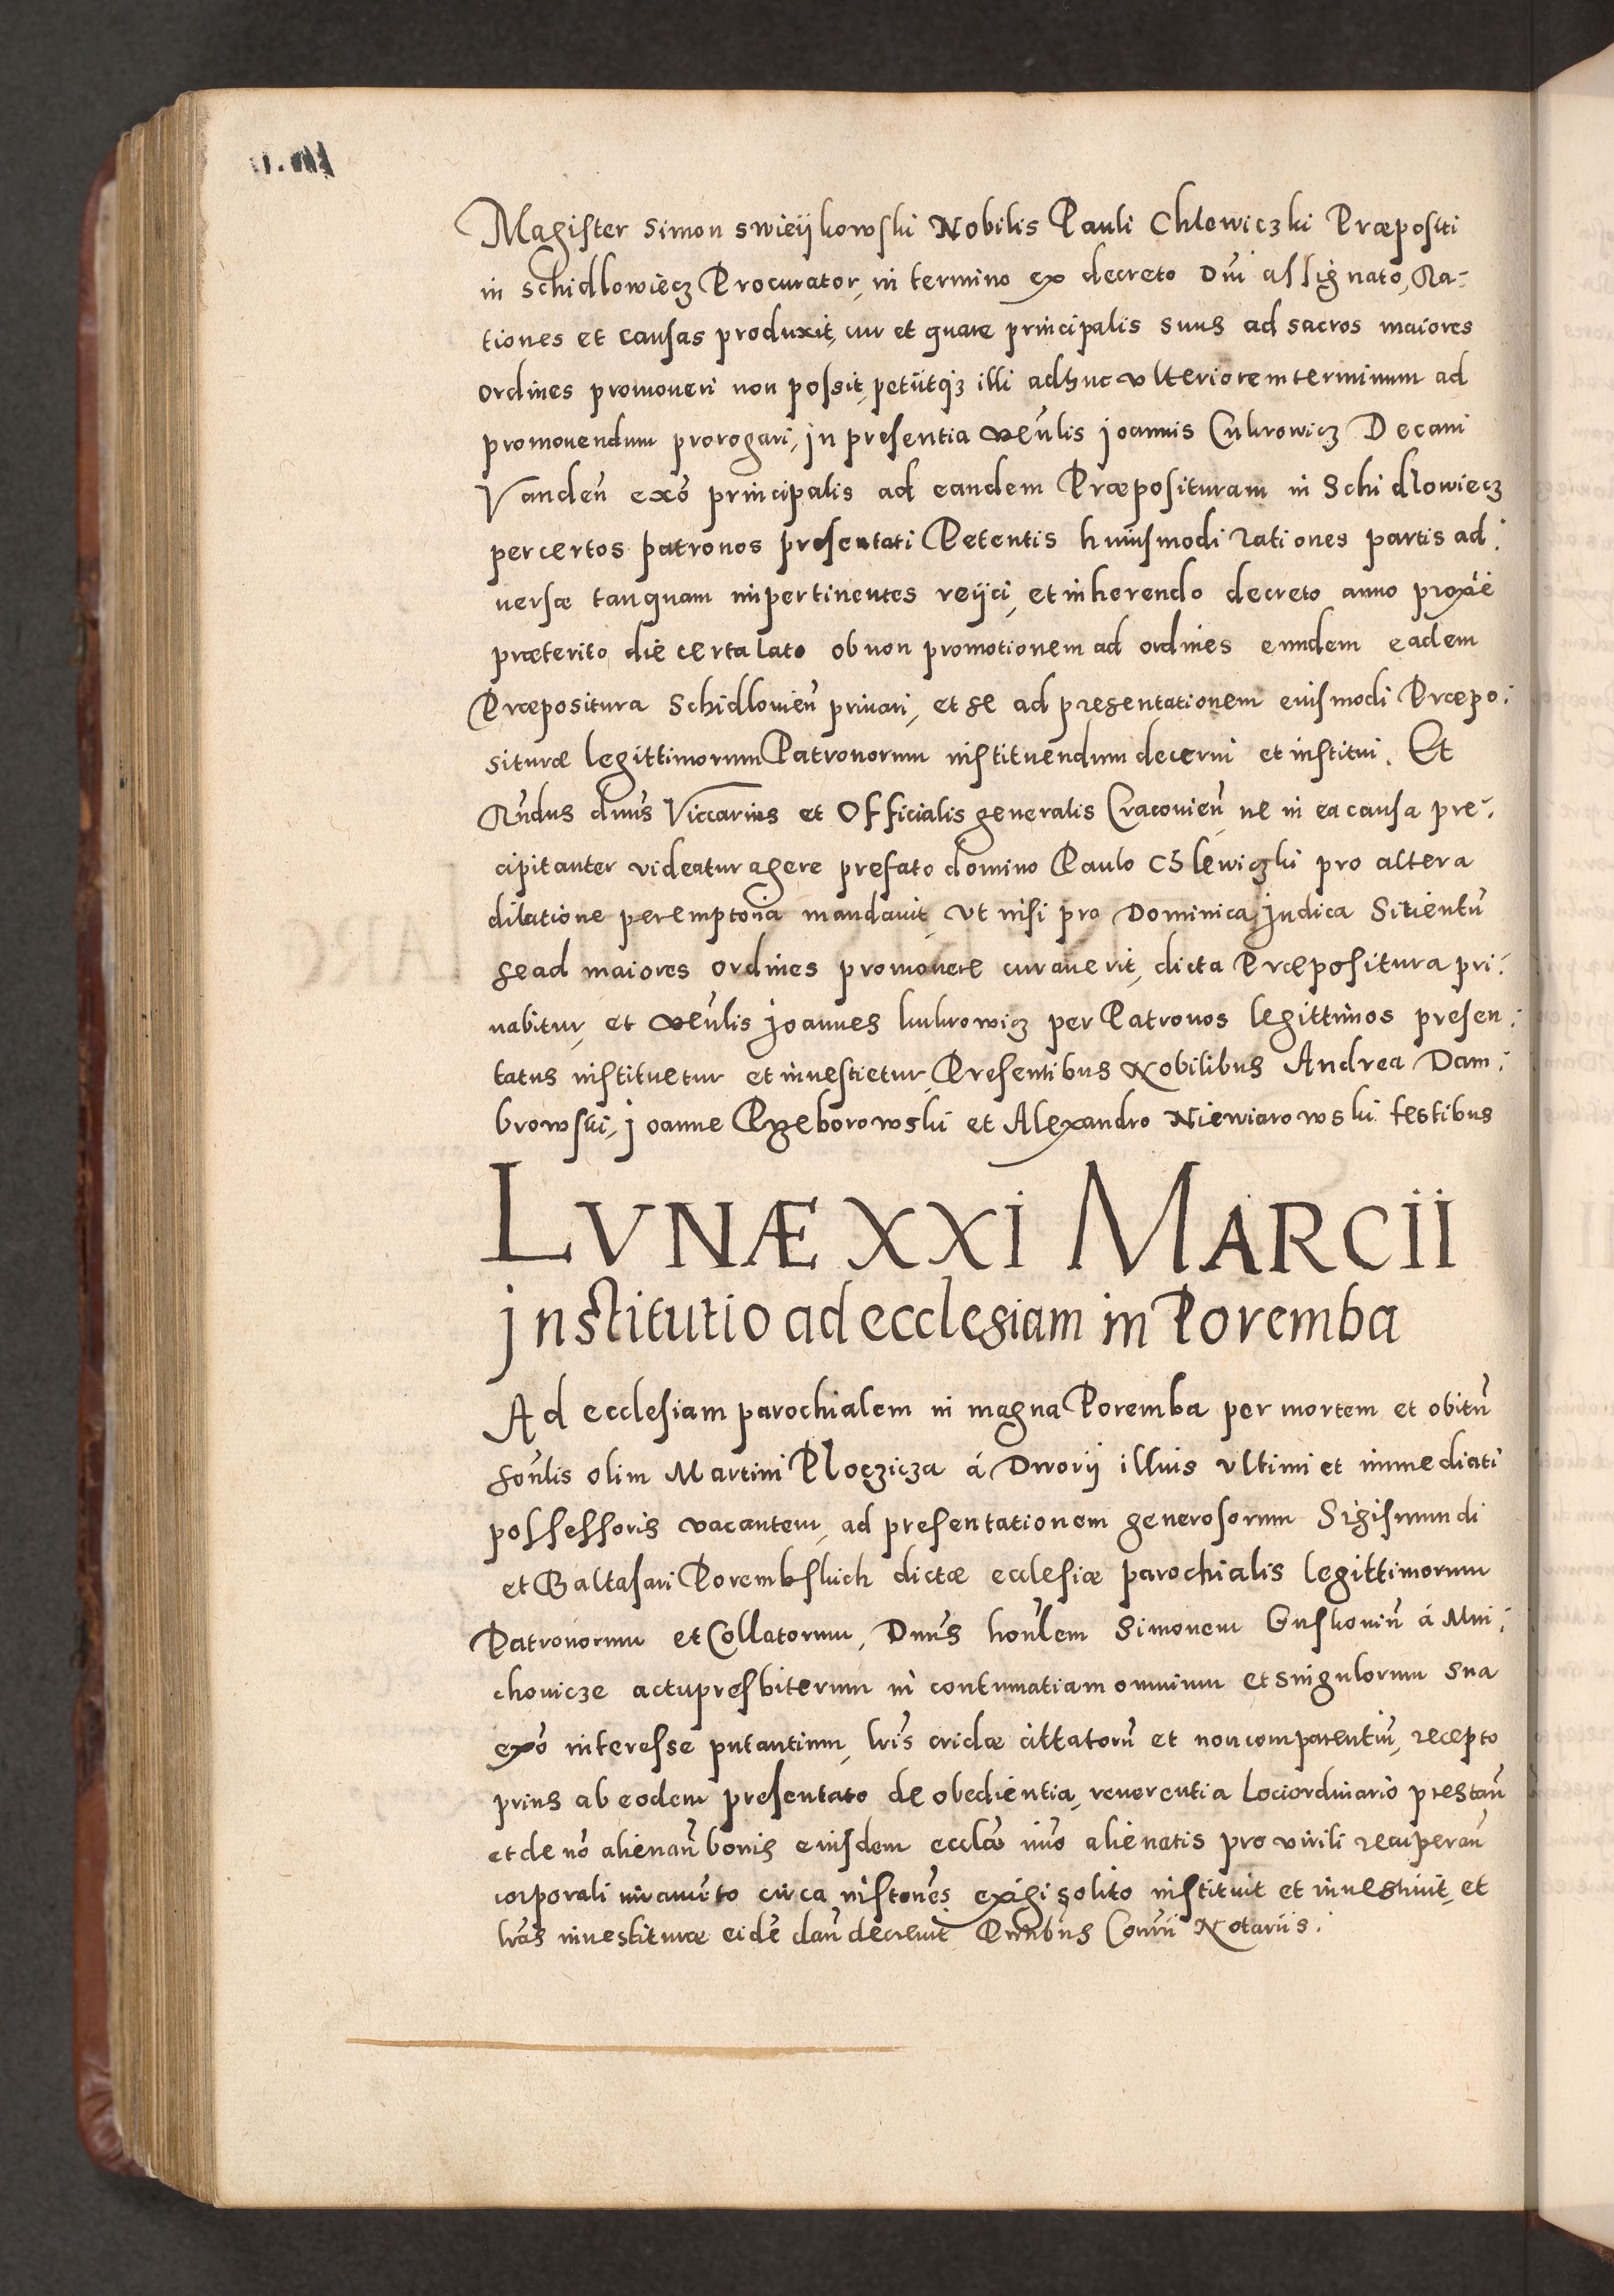 Magister Simon Swieijkowski Nobilis Pauli Chlewiczki Præpositi
in Schidlowiecz Procurator, in termino ex decreto Dñi assignato, Ra-
tiones et causas produxit, cur et quare principalis suus ad sacros maiores
Ordines promoveri non possit, petiitqz illi adhuc ulteriorem terminum ad
promouendum prorogari, in presentia veñlis Joannis Cukrowicz Decani
Vandeñ exõ principalis ad eandem Præposituram in Schidlowiecz
per certos patronos presentati Petentis huiusmodi rationes partis ad:
uersæ tanquam impertinentes reijci, et inherendo decreto anno proxiẽ
præterito die certa lato ob non promotionem ad ordines eundem eadem
Præpositura Schidlovieñ priuari, et se ad presentationem eiusmodi Præpo:
situræ legittimorum Patronorum instituendum decerni et institui. Et
Rñdus dnũs Viccarius et Officialis generalis Cracovieñ ne in ea causa pre:
cipitanter videatur agere prefato domino Paulo Chlewiczki pro altera
dilatione peremptoria mandauit, ut nisi pro Dominica Judica Sitientũ
se ad maiores ordines promovere curauerit, dicta Præpositura pri:
uabitur, et veñlis Joannes kukrowicz per Patronos legittimos presen:
tatus instituetur et inuestietur, Presentibus Nobilibus Andrea Dam:
browski, Joanne Przeborowski et Alexandro Niewiarowski testibus
LVNÆ XXI MARCII
Institutio ad ecclesiam in Poremba
Ad ecclesiam parochialem in magna Poremba per mortem et obitũ
hoñlis olim Martini Ploczicza á Dworij illius ultimi et immediati
possessoris vacantem, ad presentationem generosorum Sigismundi
et Baltasari Porembskich dictæ ecclesiæ parochialis legittimorum
Patronorum et Collatorum, Dnũs hoñlem Simonem Guskoviũ á Mni:
chovicze actupresbiterum in contumatiam omnium et singulorum sua
exõ interesse putantium, lrĩs cridæ cittatorũ et non comparentiũ, recepto
prius ab eodem presentato de obedientia, reuerentia Loci ordinario prestañ
et de nõ alienañ bonis eiusdem ecclæ imo alienatis pro virili recuperañ
corporali iuramẽto circa instonẽs exigi solito instituit et inuestiuit, et
lrãs inuestituræ eidẽ dañ decreuit Pñtibus Coñii Notariis.